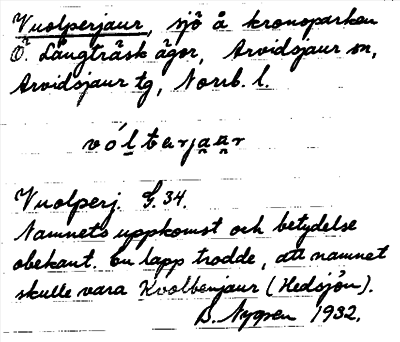 Vuolperjaur, sjö å kronoparken
Ö. Långträsk ägor, Arvidsjaur sn,
Arvidsjaur tg, Norrb. l.
vóltərjau̯r
Vuolperj. G. 34.
Namnets uppkomst och betydelse
obekant. En lapp trodde, att namnet
skulle vara Kvolbenjaur (Hedsjön).
B. Nygren 1932.